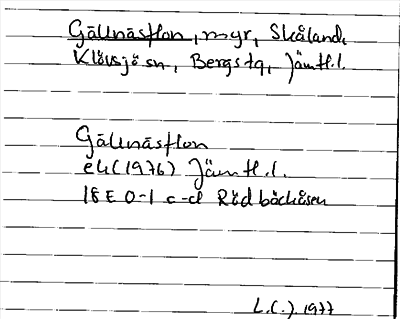 Gällnäsflon, myr, Skåland,
Klövsjö sn, Bergs tg, Jämtl.l.
Gällnäsflon
ek (1976) Jämtl.l.
18E 0-1 c-d Rödbäckåsen
L.(.) 1977